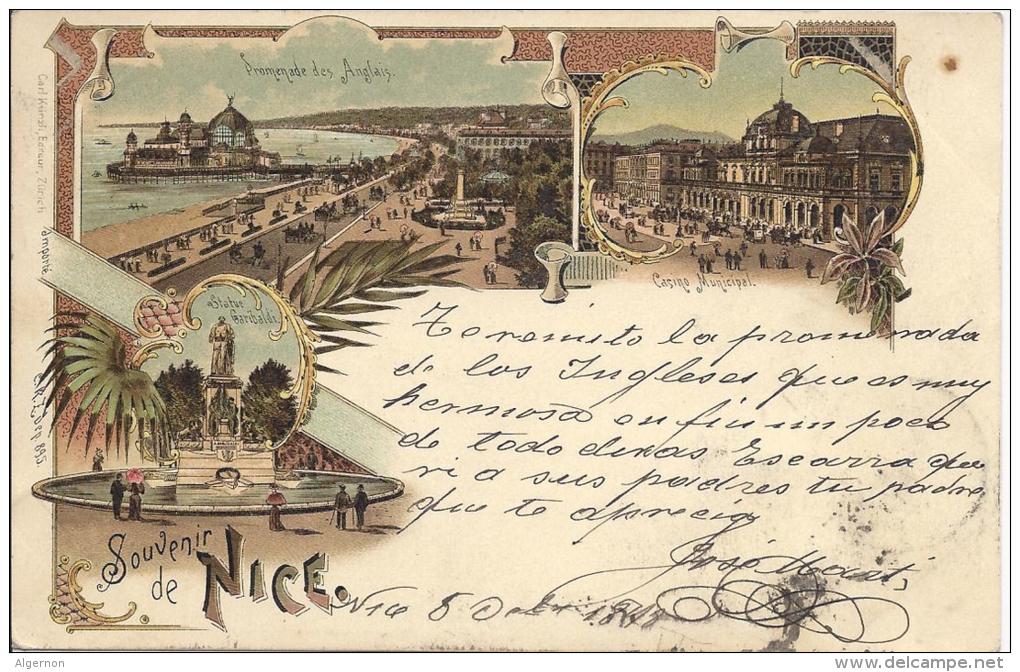 Promenade des Anglais.
Casino Municipal.
Statue
Garibaldi.
Carl Künzli, Editeur, Zürich
Te remito la promenada
de los Ingleses que es muy
hermosa en fin un poco
de todo diras Escarra que
ri a sus padres tu padre
que te aprecia
José
Souvenir
de NICE.
Nice 5 1898
Algernon
www.delcampe.net